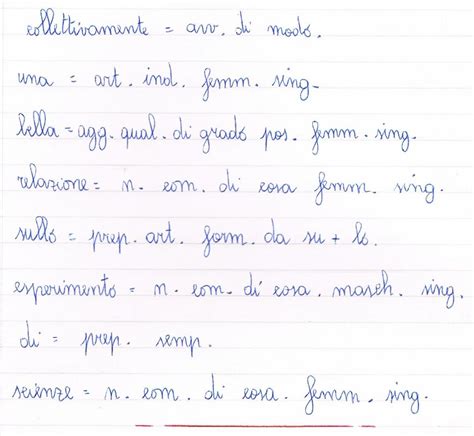 collettivamente = avv. di modo.
una = art. ind. femm. sing.
bella = agg. qual. di grado pos. femm. sing.
relazione = n. com. di cosa femm. sing.
sullo = prep. art. form. da su + lo.
esperimento = n. com. di cosa. masch. sing.
di = prep. semp.
scienze = n. com. di cosa. femm. sing.